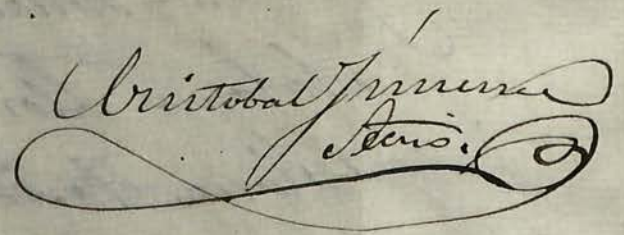 Cristobal Jimenez
Srio.